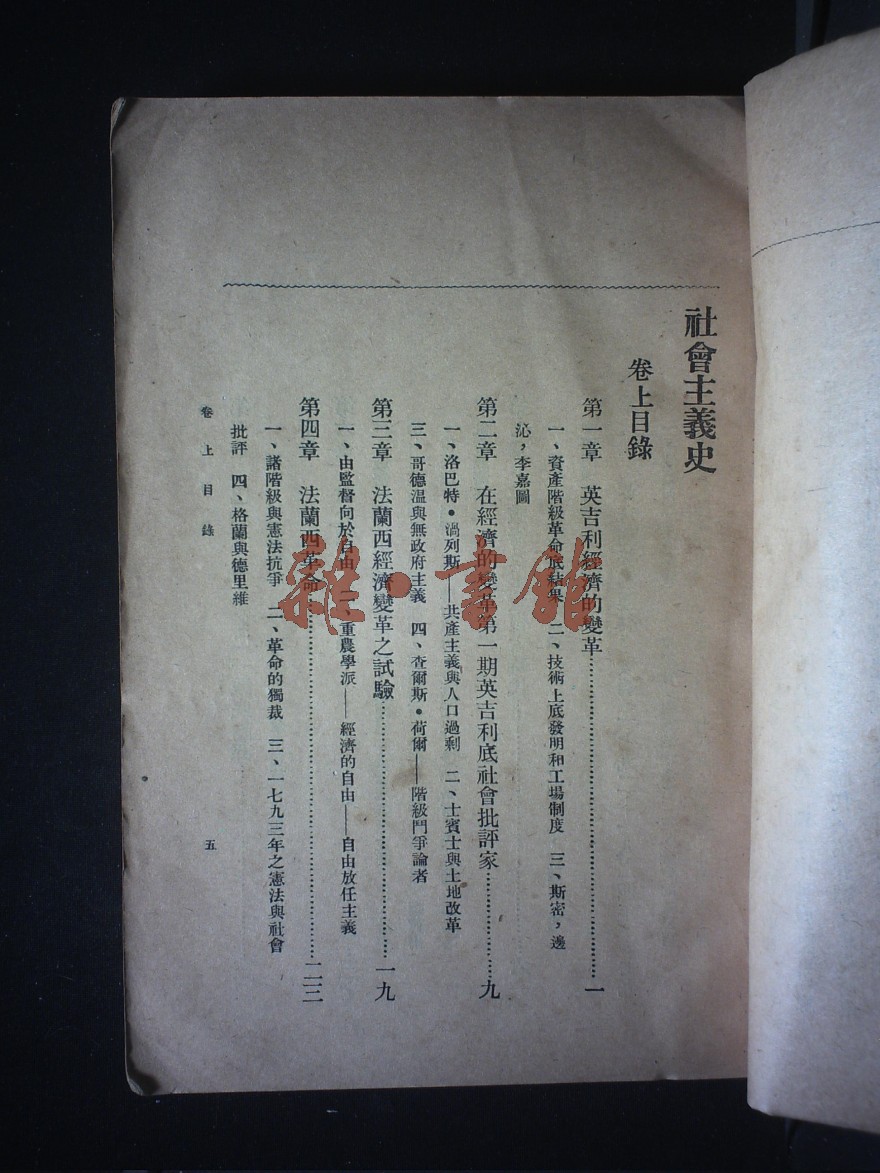 社會主義史
卷上目錄
第一章　英吉利經濟的變革……一
一、資產階級革命底結果　二、技術上底發明和工場制度　三、斯密，邊
沁，李嘉圖
第二章　在經濟的變革第一期英吉利底社會批評家……九
一、洛巴特•渦列斯——共產主義與人口過剩　二、士賓士與土地改革
三、哥德溫與無政府主義　四、查爾斯•荷爾——階級鬥爭論者
第三章　法蘭西經濟變革之試驗……一九
一、由監督向於自由　二、重農學派——經濟的自由——自由放任主義
第四章　法蘭西革命……二三
一、諸階級與憲法抗爭　二、革命的獨裁　三、一七九三年之憲法與社會
批評　四、格蘭與德里維
卷上目錄　五
雜•書館